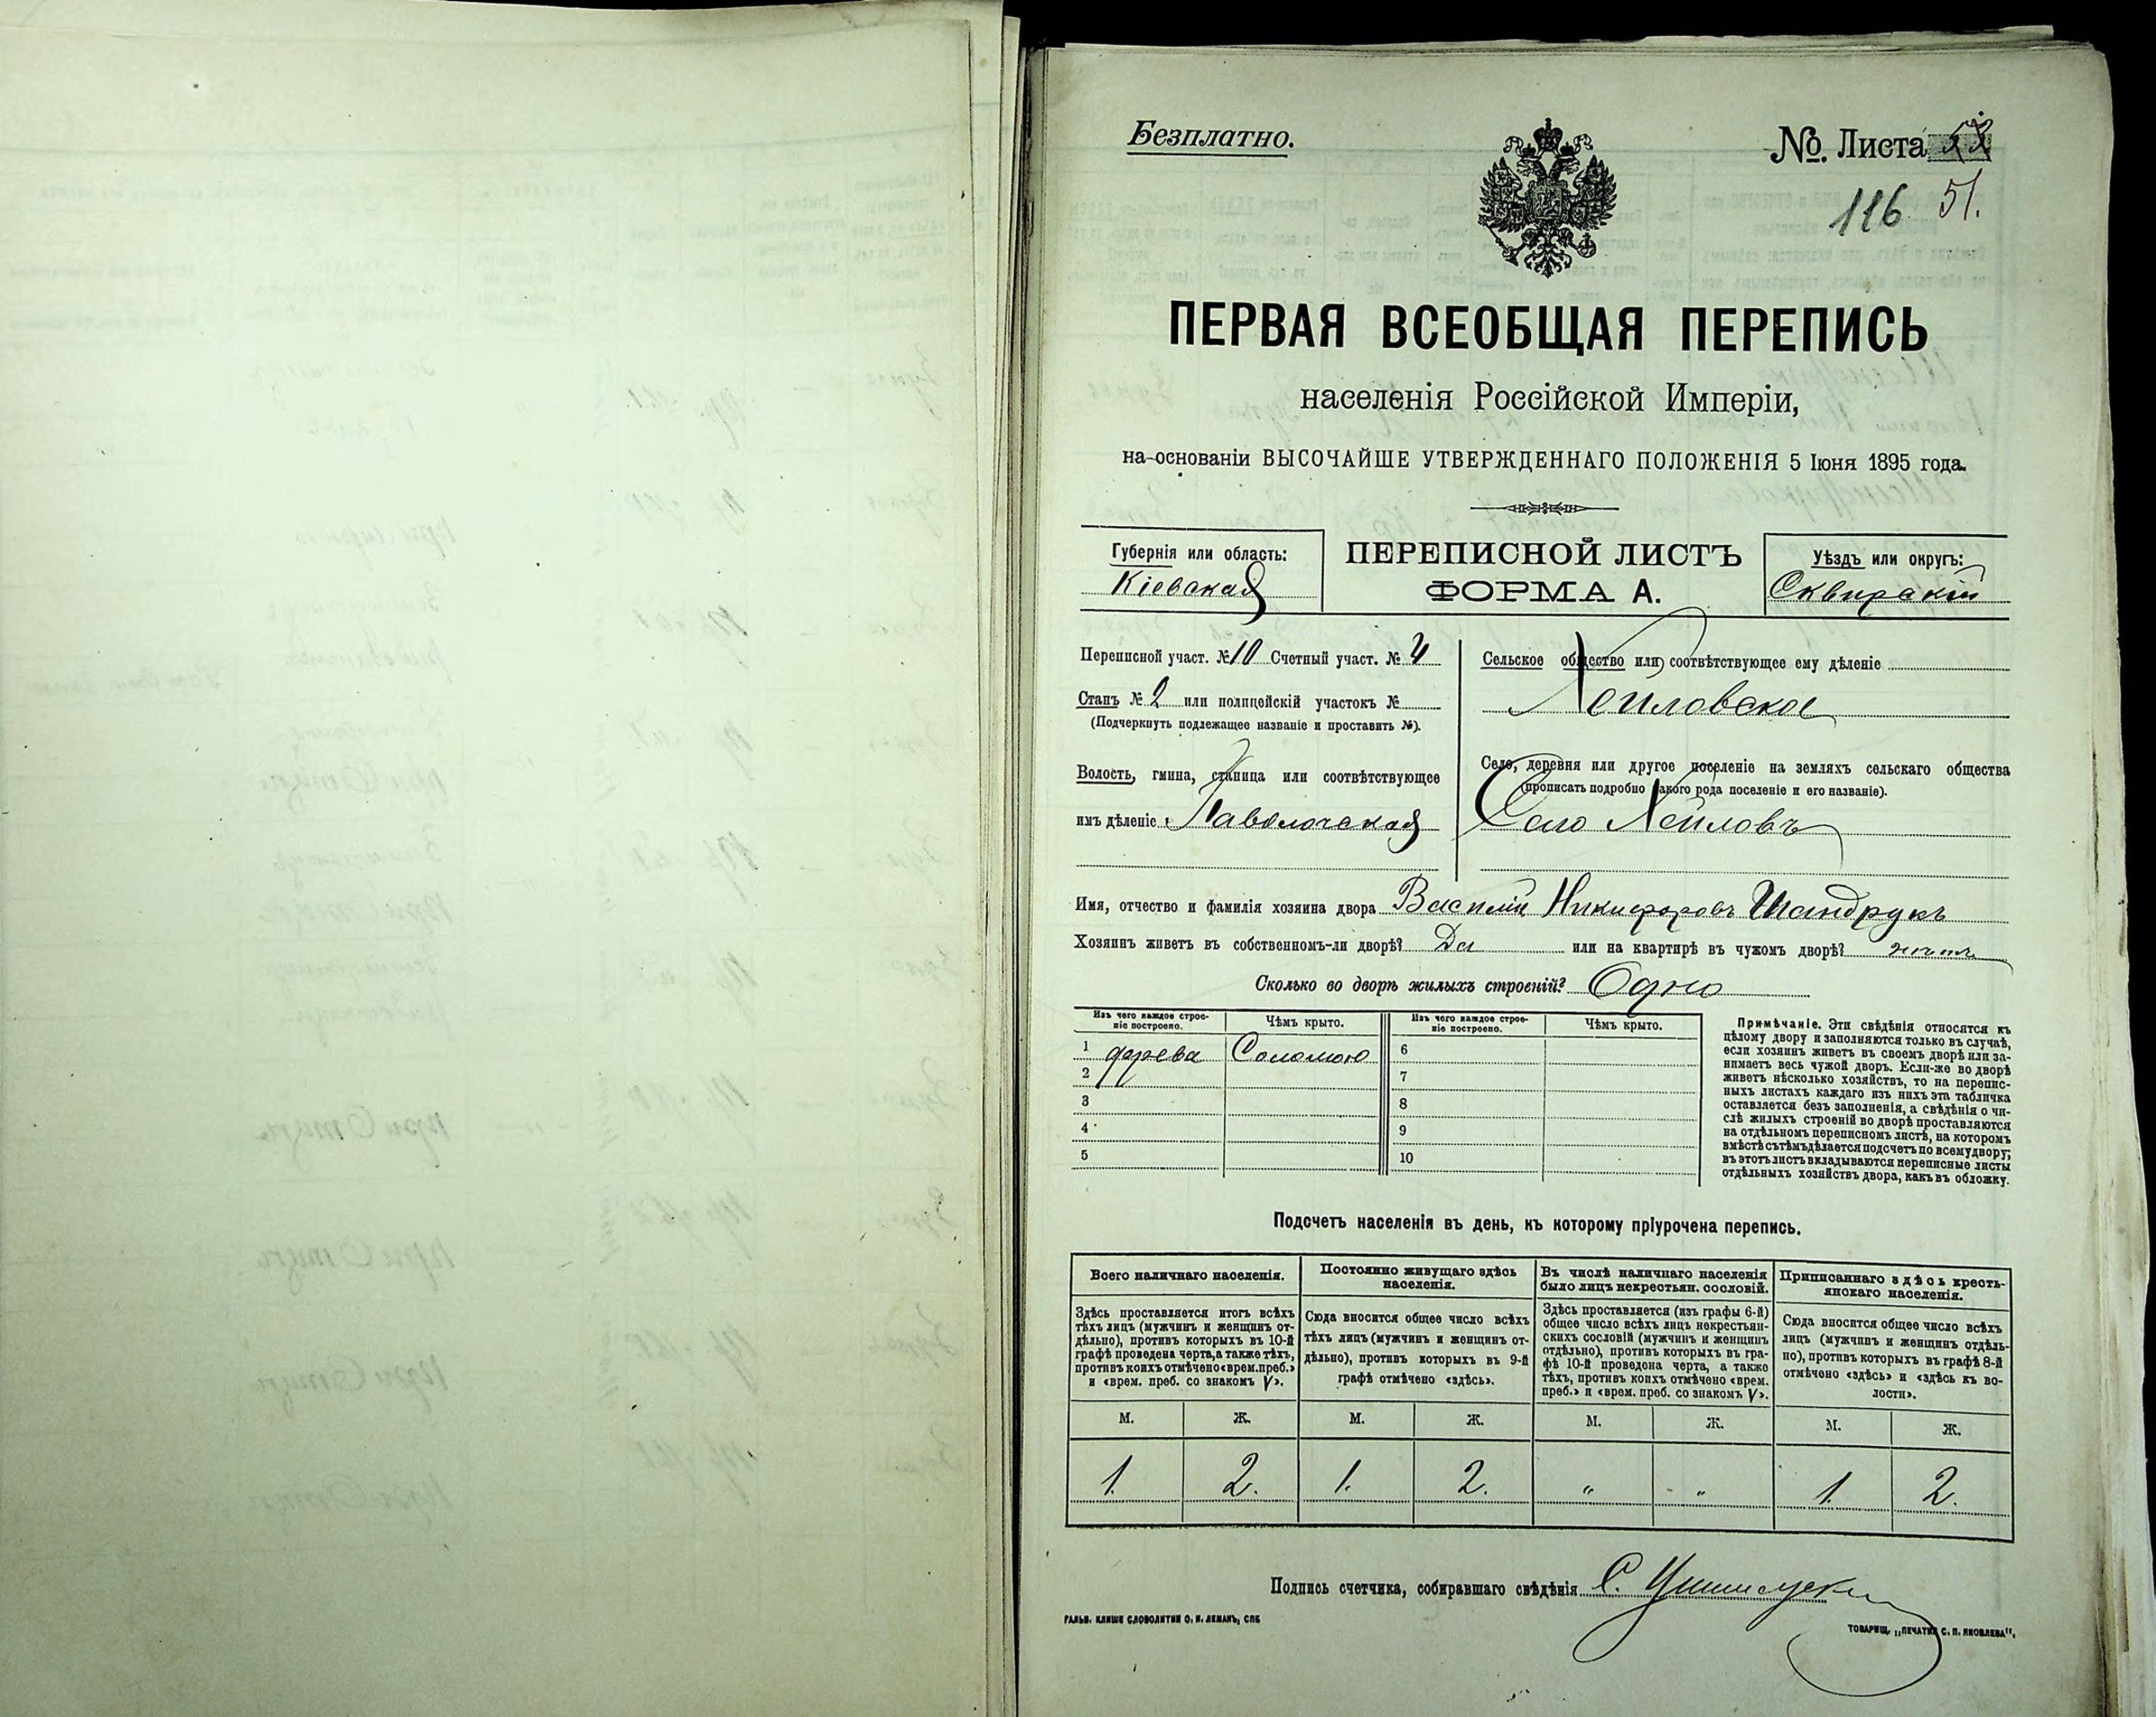 Безплатно.
№. Листа
116 51.
ПЕРВАЯ ВСЕОБЩАЯ ПЕРЕПИСЬ
населенія Россійской Имперіи,
на основаніи ВЫСОЧАЙШЕ УТВЕРЖДЕННАГО ПОЛОЖЕНІЯ 5 Іюня 1895 года.
Губернія или область:
Кіевская
ПЕРЕПИСНОЙ ЛИСТЪ
ФОРМА А.
Уѣздъ или округъ:
Сквирскій
Переписной участ. № 10 Счетный участ. № 4
Станъ № 2 или полицейскій участокъ №
(Подчеркнуть подлежащее названіе и проставить №).
Волость, гмина, станица или соотвѣтствующее
имъ дѣленіе: Паволочская
Сельское общество или соотвѣтствующее ему дѣленіе
Хейловское
Село, деревня или другое поселеніе на земляхъ сельскаго общества
(прописать подробно какого рода поселеніе и его названіе).
Село Хейловъ
Имя, отчество и фамилія хозяина двора Василій Никифоровъ Шандрукъ
Хозяинъ живетъ въ собственномъ-ли дворѣ? Да или на квартирѣ въ чужомъ дворѣ?
Сколько во дворѣ жилыхъ строеній? Одно
Изъ чего каждое строе-
ніе построено.
Чѣмъ крыто.
Изъ чего каждое строе-
ніе построено.
Чѣмъ крыто.
1 дерева Соломою 6
2 7
3 8
4 9
5 10
Примѣчаніе. Эти свѣдѣнія относятся къ
цѣлому двору и заполняются только въ случаѣ,
если хозяинъ живетъ въ своемъ дворѣ или за-
нимаетъ весь чужой дворъ. Если-же во дворѣ
живетъ нѣсколько хозяйствъ, то на перепис-
ныхъ листахъ каждаго изъ нихъ эта табличка
оставляется безъ заполненія, а свѣдѣнія о чи-
слѣ жилыхъ строеній во дворѣ проставляются
на отдѣльномъ переписномъ листѣ, на которомъ
вмѣстѣ съ тѣмъ дѣлается подсчетъ по всему двору;
въ этотъ листъ вкладываются переписные листы
отдѣльныхъ хозяйствъ двора, какъ въ обложку.
Подсчетъ населенія въ день, къ которому пріурочена перепись.
Всего наличнаго населенія.
Здѣсь проставляется итогъ всѣхъ
тѣхъ лицъ (мужчинъ и женщинъ от-
дѣльно), противъ которыхъ въ 10-й
графѣ проведена черта, а также тѣхъ,
противъ коихъ отмѣчено «врем. преб.»
и «врем. преб. со знакомъ V».
Постоянно живущаго здѣсь
населенія.
Сюда вносится общее число всѣхъ
тѣхъ лицъ (мужчинъ и женщинъ от-
дѣльно), противъ которыхъ въ 9-й
графѣ отмѣчено «здѣсь».
Въ числѣ наличнаго населенія
было лицъ некрестьян. сословій.
Здѣсь проставляется (изъ графы 6-й)
общее число всѣхъ лицъ некрестьян-
скихъ сословій (мужчинъ и женщинъ
отдѣльно), противъ которыхъ въ гра-
фѣ 10-й проведена черта, а также
тѣхъ, противъ коихъ отмѣчено «врем.
преб.» и «врем. преб. со знакомъ V».
Приписаннаго здѣсь кресть-
янскаго населенія.
Сюда вносится общее число всѣхъ
лицъ (мужчинъ и женщинъ отдѣль-
но), противъ которыхъ въ графѣ 8-й
отмѣчено «здѣсь» и «здѣсь къ во-
лости».
М. Ж. М. Ж. М. Ж. М. Ж.
1. 2. 1. 2. " " 1. 2.
Подпись счетчика, собиравшаго свѣдѣнія
ГАЛЬВ. КЛИШЕ СЛОВОЛИТНИ О. И. ЛЕМАНЪ, СПБ
ТОВАРИЩ. „ПЕЧАТНЯ С. П. ЯКОВЛЕВА".